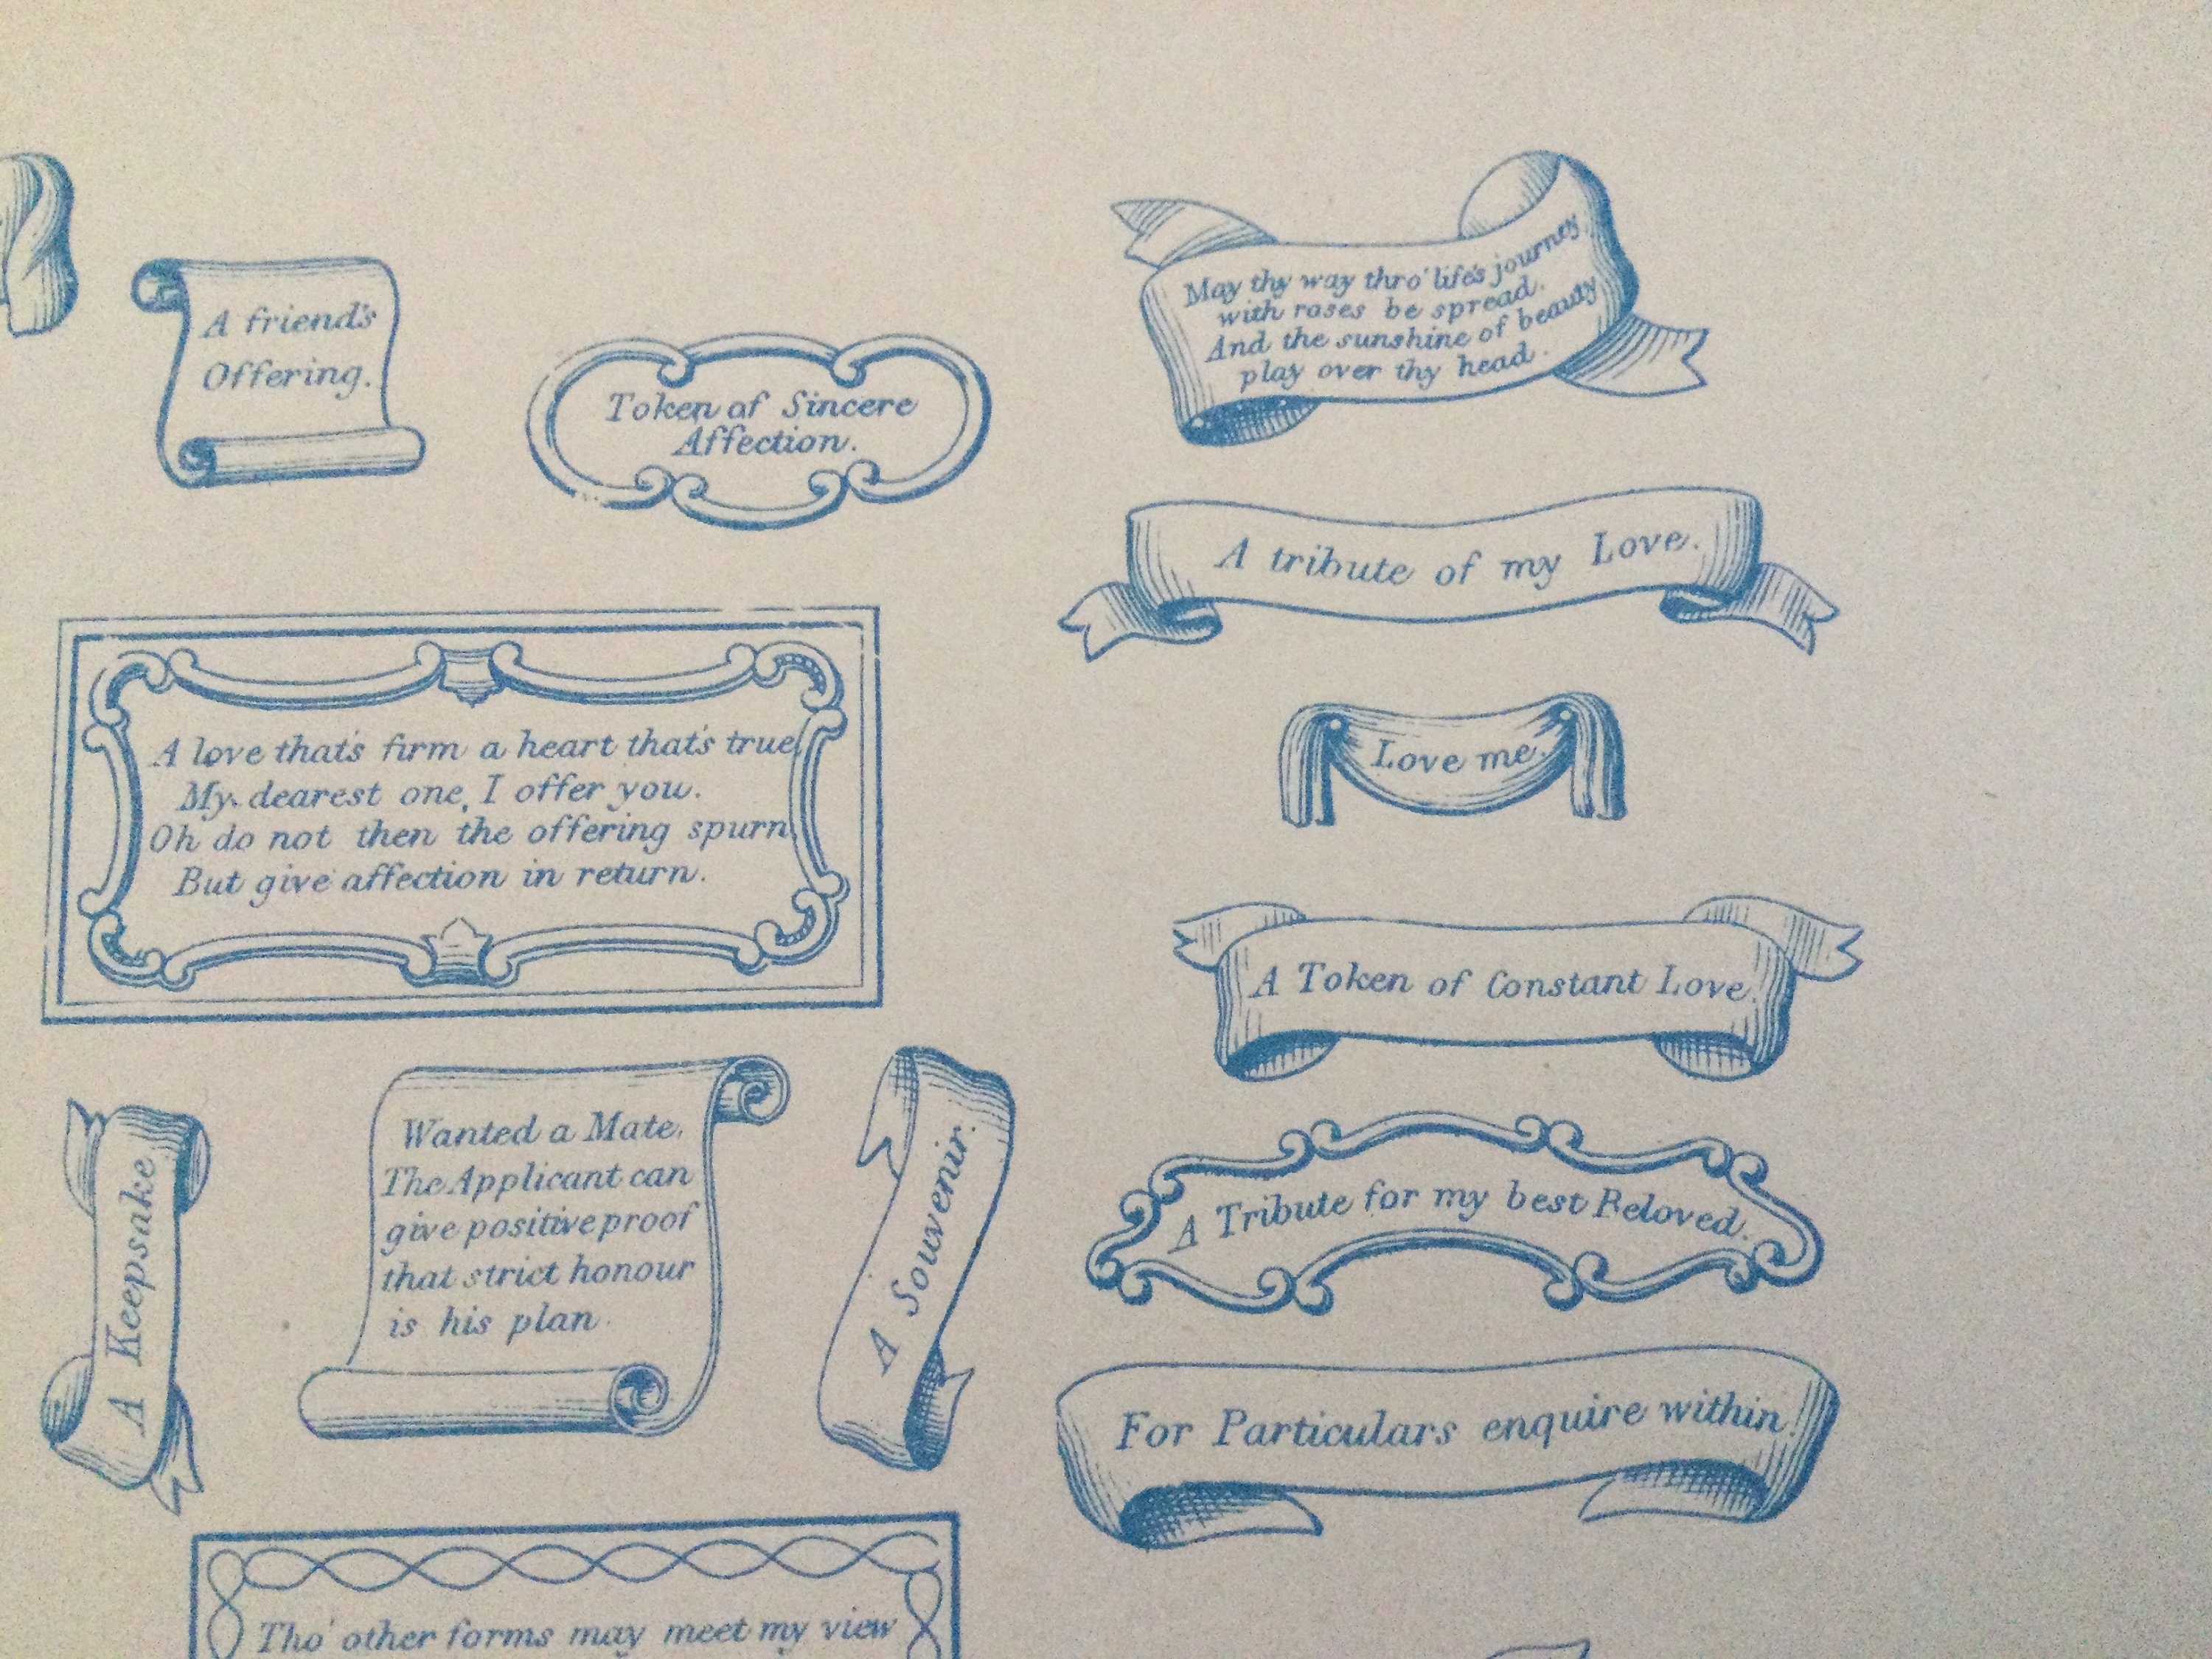 A friend's
Offering.
Token of Sincere
Affection.
May thy way thro' life's journey
with roses be spread.
And the sunshine of beauty
play over thy head.
A tribute of my Love.
A love that's firm a heart that's true,
My dearest one, I offer you.
Oh do not then the offering spurn,
But give affection in return.
Love me.
A Token of Constant Love.
A Keepsake
Wanted a Mate.
The Applicant can
give positive proof
that strict honour
is his plan.
A Souvenir.
A Tribute for my best Beloved.
For Particulars enquire within.
Tho' other forms may meet my view